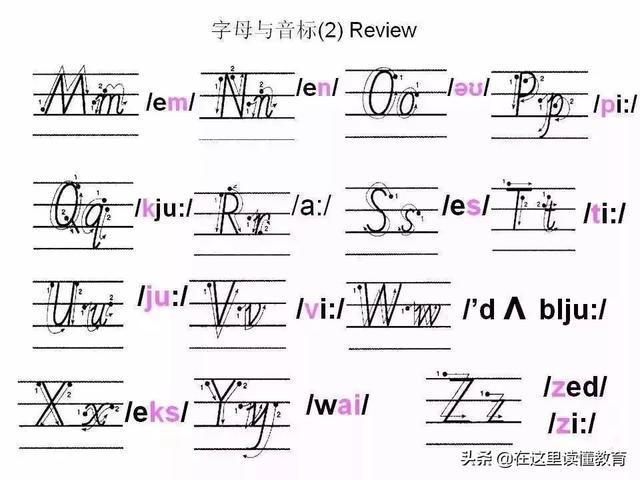 字母与音标(2) Review
Mm /em/ Nn /en/ Oo /əʊ/ Pp /pi:/
Qq /kju:/ Rr /a:/ Ss /es/ Tt /ti:/
Uu /ju:/ Vv /vi:/ Ww /'d ʌ blju:/
Xx /eks/ Yy /wai/ Zz /zed/
/zi:/
头条 @在这里读懂教育